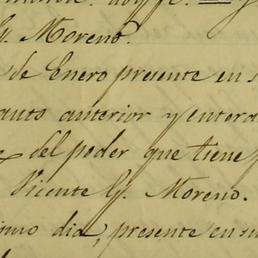 G. Moreno.
de Enero presente en s
auto anterior y entera
del poder que tiene
Vicente G. Moreno.
ismo dia, presente en su